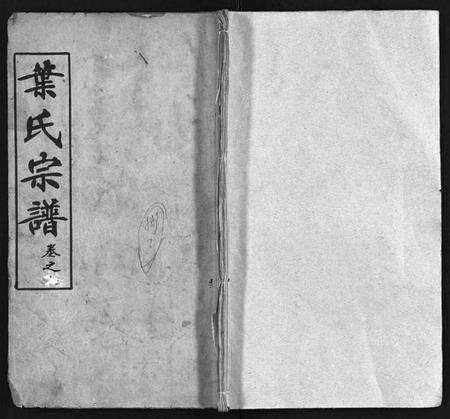 葉氏宗譜
卷之